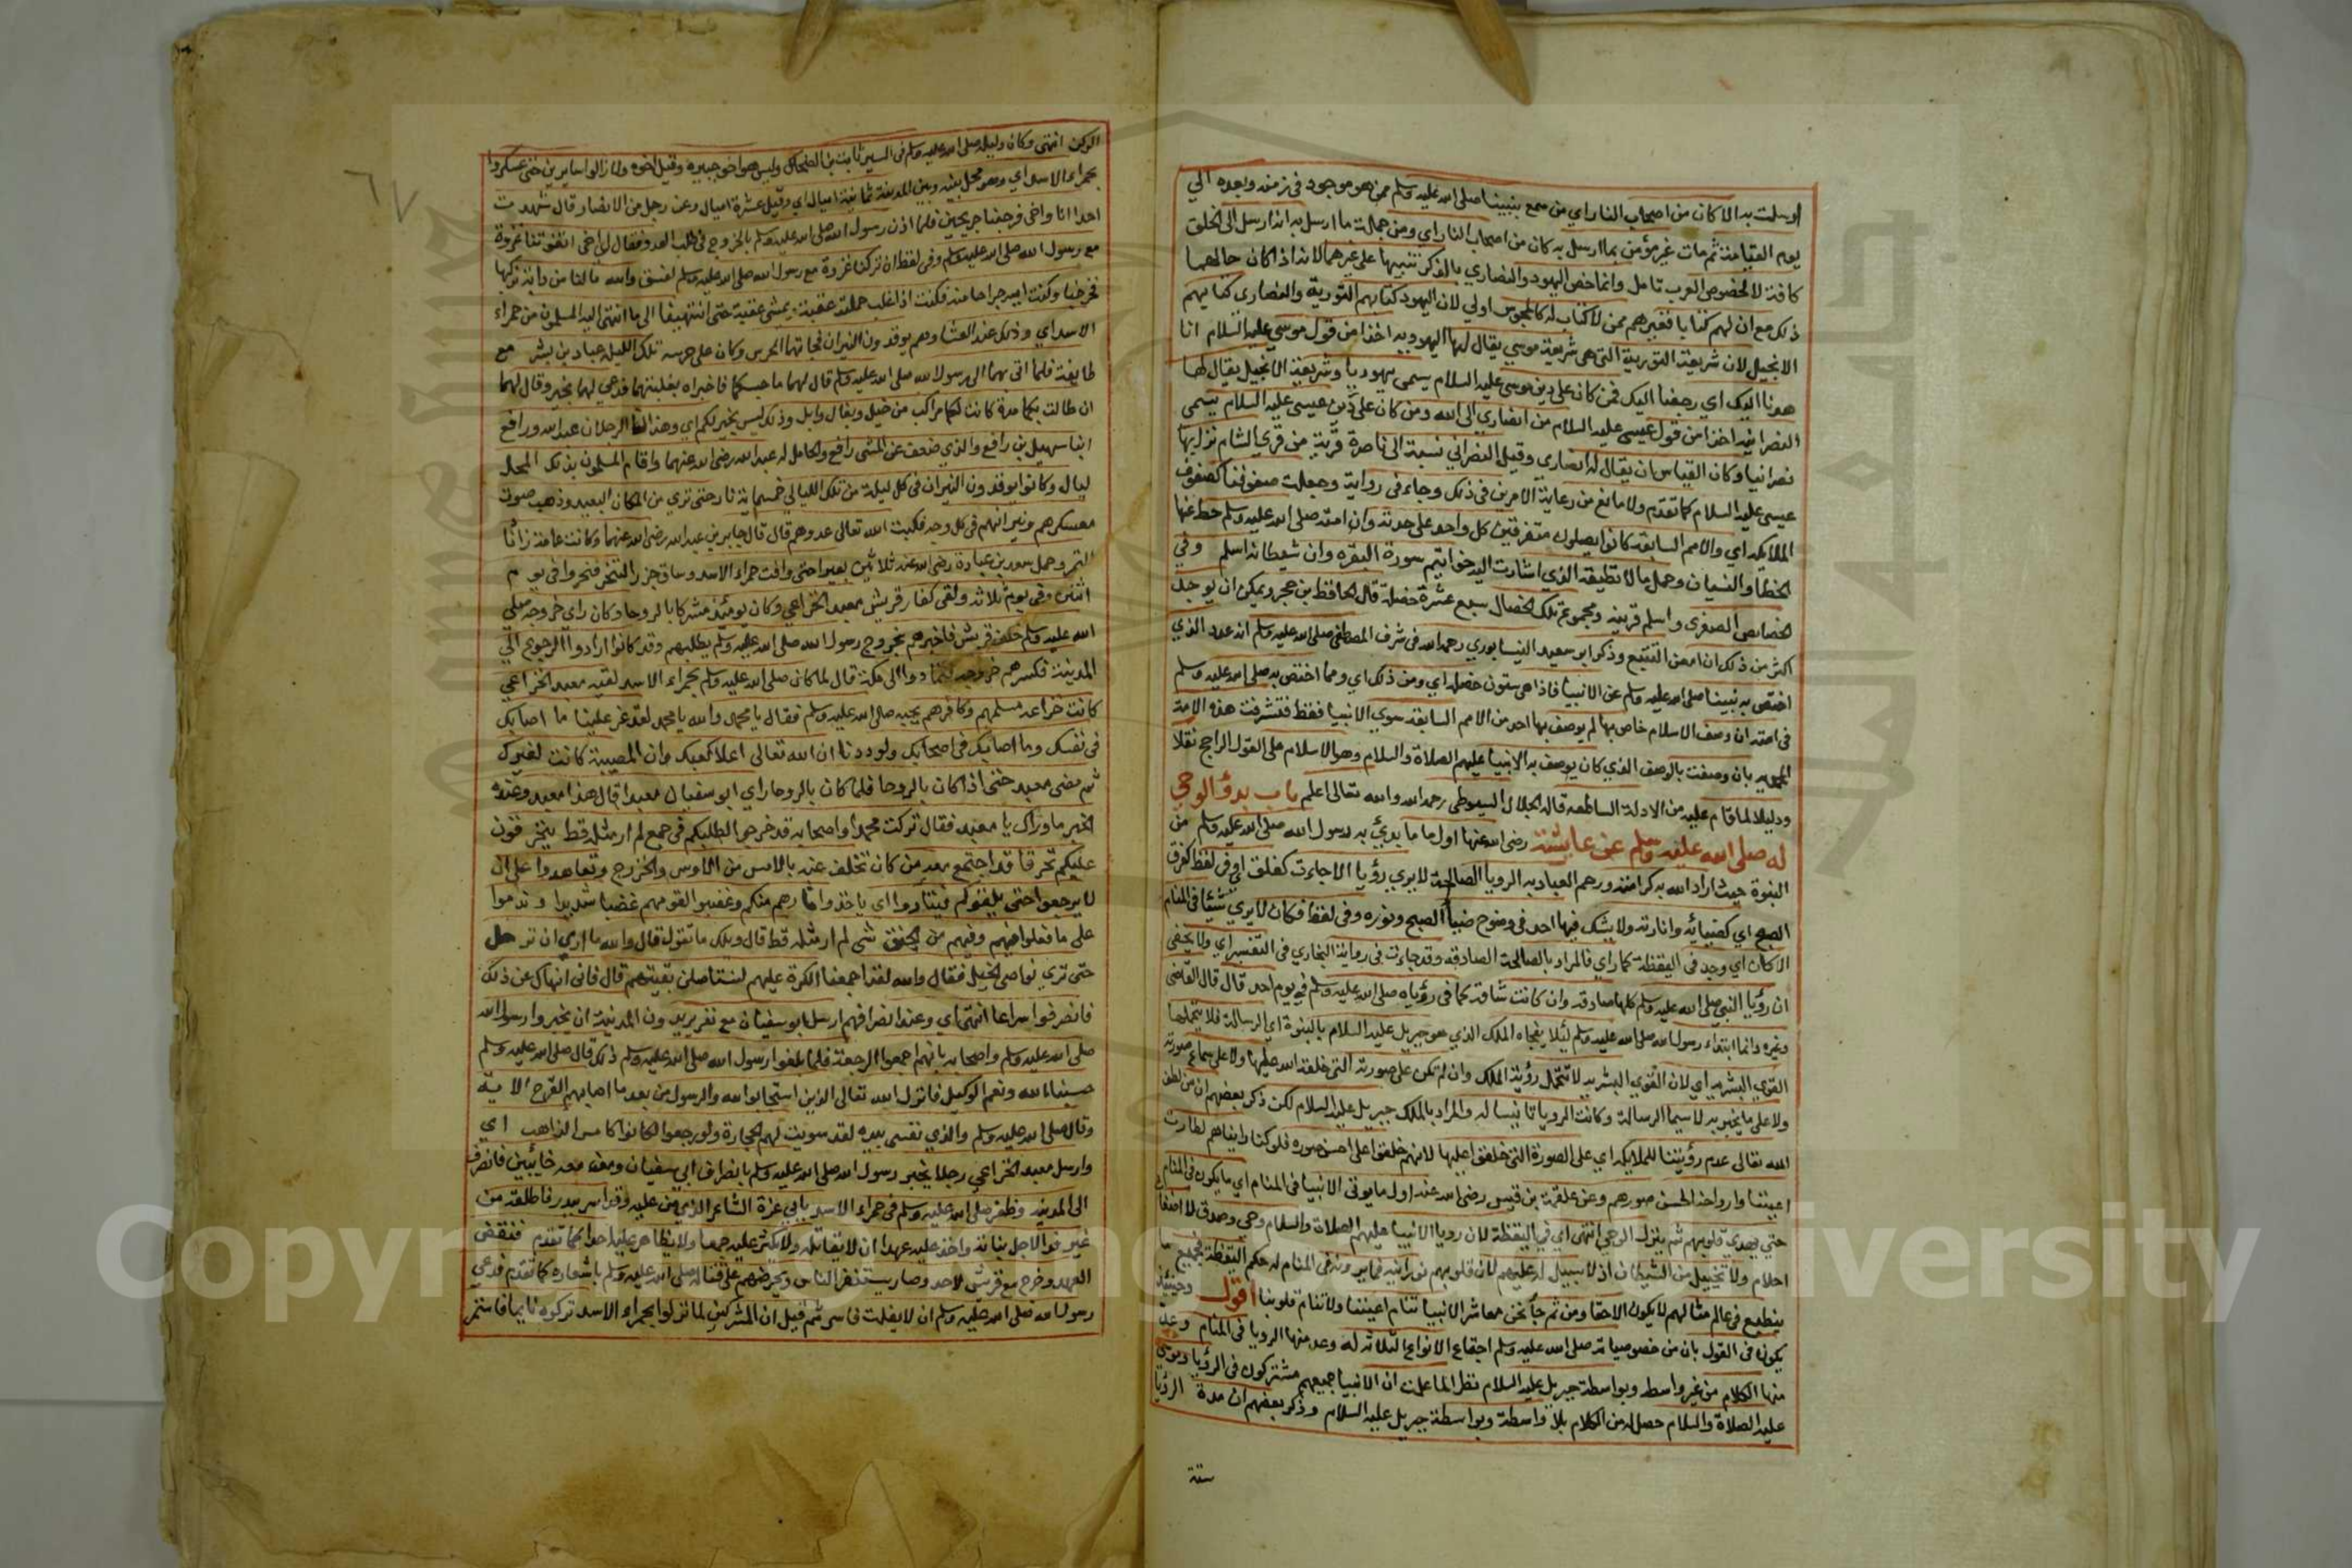 ارسلت به الا كان من اصحاب النار اي من سمع بنبينا صلى الله عليه وسلم ممن هو موجود في زمنه وبعده الي
يوم القيامة ثم مات غير مؤمن بما ارسل به كان من اصحاب النار اي ومن جملة ما ارسل به انه ارسل الى الخلق
كافة لا لخصوص العرب تامل وانما خص اليهود والنصاري بالذكر تنبيها على غيرهما لانه اذا كان حالهما
ذلك مع ان لهم كتابا فغيرهم ممن لا كتاب له كالمجوس اولي لان اليهود كتابهم التورية والنصاري كتابهم
الانجيل لان شريعة التورية التى هى شريعة موسي يقال لها اليهودية اخذا من قول موسي عليه السلام انا
هدنا اليك اي رجعنا اليك فمن كان على دين موسى عليه السلام يسمى يهوديا وشريعة الانجيل يقال لها
النصرانيه اخذا من قول عيسى عليه السلام من انصاري الى الله ومن كان على دين عيسى عليه السلام يسمى
نصرانيا وكان القياس ان يقال له انصاري وقيل النصراني نسبة الى ناصرة قرية من قري الشام نزل بها
عيسى عليه السلام كما تقدم ولا مانع من رعاية الامرين في ذلك وجاء في رواية وجعلت صفوفنا كصفوف
الملايكه اي والامم السابقه كانوا يصلون متفرقين كل واحد على حدته وان امته صلى الله عليه وسلم حط عنها
الخطا والنسيان وحمل ما لا تطيقه الذي اشارت اليه خواتيم سورة البقره وان شيطانه اسلم وفي
الخصايص الصغرى واسلم قرينه ومجموع تلك الخصال سبع عشرة خصلة قال الحافظ بن حجر ويمكن ان يوجد
اكثر من ذلك ان امعن التتبع وذكر ابو سعيد النيسابوري رحمه الله في شرف المصطفى صلى الله عليه وسلم ان عدد الذي
اختص به نبينا صلى الله عليه وسلم عن الانبيا فاذا هى ستون خصله اي ومن ذلك اي ومما اختص به صلى الله عليه وسلم
في امته ان وصف الاسلام خاص بها لم يوصف بها احد من الامم السابقه سوي الانبيا فقط فتشرفت هذه الامة
المحمديه بان وصفت بالوصف الذي كان يوصف به الانبيا عليهم الصلاة والسلام وهو الاسلام على القول الراجح نقلا
ودليلا لما قام عليه من الادلة الساطعه قاله الجلال السيوطى رحمه الله والله تعالى اعلم باب بدؤ الوحي
له صلى الله عليه وسلم عن عايشة رضى الله عنها اول ما بدئ به رسول الله صلى الله عليه وسلم من
النبوة حيث اراد الله به كرامته ورحم العباد به الرويا الصالحة لا يري رؤيا الا جاءت كفلق اي وفي لفظ كفرق
الصبح اي كضيائه وانارته ولا يشك فيها احد في وضوح ضيا الصبح ونوره وفي لفظ فكان لا يري شيئا في المنام
الا كان اي وجد في اليقظة كما راي فالمراد بالصالحة الصادقه وقد جاءت في رواية البخاري في التفسير اي ولا يخفى
ان رؤيا النبي صلى الله عليه وسلم كلها صادقه وان كانت شاقة كما في رؤياه صلى الله عليه وسلم في يوم احد قال قال القاضي
وغيره وانما ابتداء رسول الله صلى الله عليه وسلم لئلا يفجاه الملك الذي هو جبريل عليه السلام بالنبوة اي الرسالة فلا يتحملها
القوي البشريه اي لان القوي البشريه لا تتحمل رؤية الملك وان لم تكن على صورته التى خلقه الله عليها ولا على سماع صورته
ولا على ما يخبر به لاسيما الرسالة وكانت الرويا تانيسا له والمراد بالملك جبريل عليه السلام لكن ذكر بعضهم ان من لطف
الله تعالى عدم رؤيتنا للملايكه اي على الصورة التى خلقوا عليها لانهم خلقوا على احسن صوره فلو كنا رايناهم لطارت
اعيننا وارواحنا لحسن صورهم وعن علقمة بن قيس رضى الله عنه اول ما يوتى الانبيا في المنام اي ما يكون في المنام
حتي تهدئ قلوبهم ثم ينزل الوحي انتهى اي في اليقظة لان رويا الانبيا عليهم الصلاة والسلام وحي وصدق لا اضغاث
احلام ولا تخييل من الشيطان اذ لا سبيل له عليهم لان قلوبهم نورانيه فما يرونه في المنام له حكم اليقظة فجميع ما
ينطبع في عالم مثالهم لا يكون الا حقا ومن ثم جا نحن معاشر الانبيا تنام اعيننا ولا تنام قلوبنا اقول وحينئذ
يكون في القول بان من خصوصياته صلى الله عليه وسلم اجتماع الانواع الثلاثه له وعد منها الرويا في المنام وعد
منها الكلام من غير واسطه وبواسطة جبريل عليه السلام نظر لما علمت ان الانبيا جميعهم مشتركون في الرؤيا وموسى
عليه الصلاة والسلام حصل له من الكلام بلا واسطة وبواسطة جبريل عليه السلام وذكر بعضهم ان مدة الرؤيا
ستة
٦٧
الركن انتهى وكان دليله صلى الله عليه وسلم في السير ثابت بن الضحاك وليس هو اخو جبيره وقيل اخوه ولما زالوا سايرين حتى عسكروا
بحمراء الاسد اي وهو محل بينه وبين المدينة ثمانية اميال اي وقيل عشرة اميال وعن رجل من الانصار قال شهدت
احدا انا واخى فرجعنا جريحين فلما اذن رسول الله صلى الله عليه وسلم بالخروج في طلب العدو فقال لي اخى اتفوتنا غزوة
مع رسول الله صلى الله عليه وسلم وفي لفظ ان تركنا غزوة مع رسول الله صلى الله عليه وسلم لفسق والله ما لنا من دابة نركبها
فخرجنا وكنت ايسر جراحا منه فكنت اذا غلب حملته عقبة ويمشي عقبة حتى انتهينا الى ما انتهى اليه المسلمون من حمراء
الاسد اي وذلك عند العشا وهم يوقدون النيران فجاتهما الحرس وكان على حرسه تلك الليلة عباد بن بشر مع
طايفة فلما اتى بهما الى رسول الله صلى الله عليه وسلم قال لهما ما حبسكما فاخبراه بعلتهما فدعى لهما بخير وقال لهما
ان طالت بكما مدة كانت لكما مراكب من خيل وبغال وابل وذلك ليس بخير لكم اي وهذان الرجلان عبد الله ورافع
ابنا سهيل بن رافع والذي ضعف عن المشى رافع والحامل له عبد الله رضى الله عنهما واقام المسلمون بذلك المحل
ليال وكانوا يوقدون النيران في كل ليلة من تلك الليالي خمسماية نار حتى تري من المكان البعيد وذهب صوت
معسكرهم ونيرانهم في كل وجه فكبت الله تعالى عدوهم قال قال جابر بن عبد الله رضى الله عنهما وكانت عامة زادنا
التمر وحمل سعد بن عبادة رضى الله عنه ثلاثين بعيرا حتى وافت حمراء الاسد وساق جزرا لتنحر فنحروا في يوم
اثنين وفي يوم ثلاثة ولقى كفار قريش معبد الخزاعي وكان يومئذ مشركا بالروحا وكان راي خروجه صلى
الله عليه وسلم خلف قريش فاخبرهم بخروج رسول الله صلى الله عليه وسلم يطلبهم وقد كانوا ارادوا الرجوع الي
المدينة فكسرهم خروجه فتمادوا الى مكة قال لما كان صلى الله عليه وسلم بحمراء الاسد لقيه معبد الخزاعي
كانت خزاعه مسلمهم وكافرهم يحبه صلى الله عليه وسلم فقال يا محمد والله يا محمد لقد عز علينا ما اصابك
في نفسك وما اصابك في اصحابك ولوددنا ان الله تعالى اعلا كعبك وان المصيبة كانت لغيرك
ثم مضى معبد حتى اذا كان بالروحا فلما كان بالروحا راي ابو سفيان معبدا قال هذا معبد وعنده
الخبر ما وراك يا معبد فقال تركت محمدا واصحابه قد خرجوا لطلبكم في جمع لم ار مثله قط يتحرقون
عليكم تحرقا قد اجتمع معه من كان تخلف عنه بالامس من الاوس والخزرج وتعاهدوا على ان
لا يرجعوا حتى يلقوكم فيثأروا اي ياخذوا ثارهم منكم وغضبوا لقومهم غضبا شديدا وندموا
على ما فعلوا فيهم وفيهم من الحنق شى لم ار مثله قط قال ويلك ما تقول قال والله ما اري ان ترحل
حتى تري نواصى الخيل فقال والله لقد اجمعنا الكرة عليهم لنستاصل بقيتهم قال فانى انهاك عن ذلك
فانصرفوا سراعا انتهى اي وعند انصرافهم ارسل ابو سفيان مع نفر يريدون المدينة ان يخبروا رسول الله
صلى الله عليه وسلم واصحابه بانهم اجمعوا الرجعة فلما بلغوا رسول الله صلى الله عليه وسلم ذلك قال صلى الله عليه وسلم
حسبنا الله ونعم الوكيل فانزل الله تعالى الذين استجابوا لله والرسول من بعد ما اصابهم القرح الاية
وقال صلى الله عليه وسلم والذي نفسى بيده لقد سومت لهم الحجارة ولو رجعوا لكانوا كامس الذاهب اي
وارسل معبد الخزاعي رجلا يخبر رسول الله صلى الله عليه وسلم بانصراف ابي سفيان ومن معه خائبين فانصرف
الى المدينه وظفر صلى الله عليه وسلم في حمراء الاسد بابي عزة الشاعر الذي من عليه وقد اسر ببدر فاطلقه من
غير فدا لاجل بناته واخذ عليه عهدا ان لا يقاتله ولا يكثر عليه جمعا ولا يظاهر عليه احدا كما تقدم فنقض
العهد وخرج مع قريش لاحد وصار يستنفر الناس ويحرضهم على قتاله صلى الله عليه وسلم باشعاره كما تقدم فدعي
رسول الله صلى الله عليه وسلم ان لا يفلت فاسر ثم قيل ان المشركين لما نزلوا بحمراء الاسد تركوه نايما فاستمر
Copyright © King Saud University